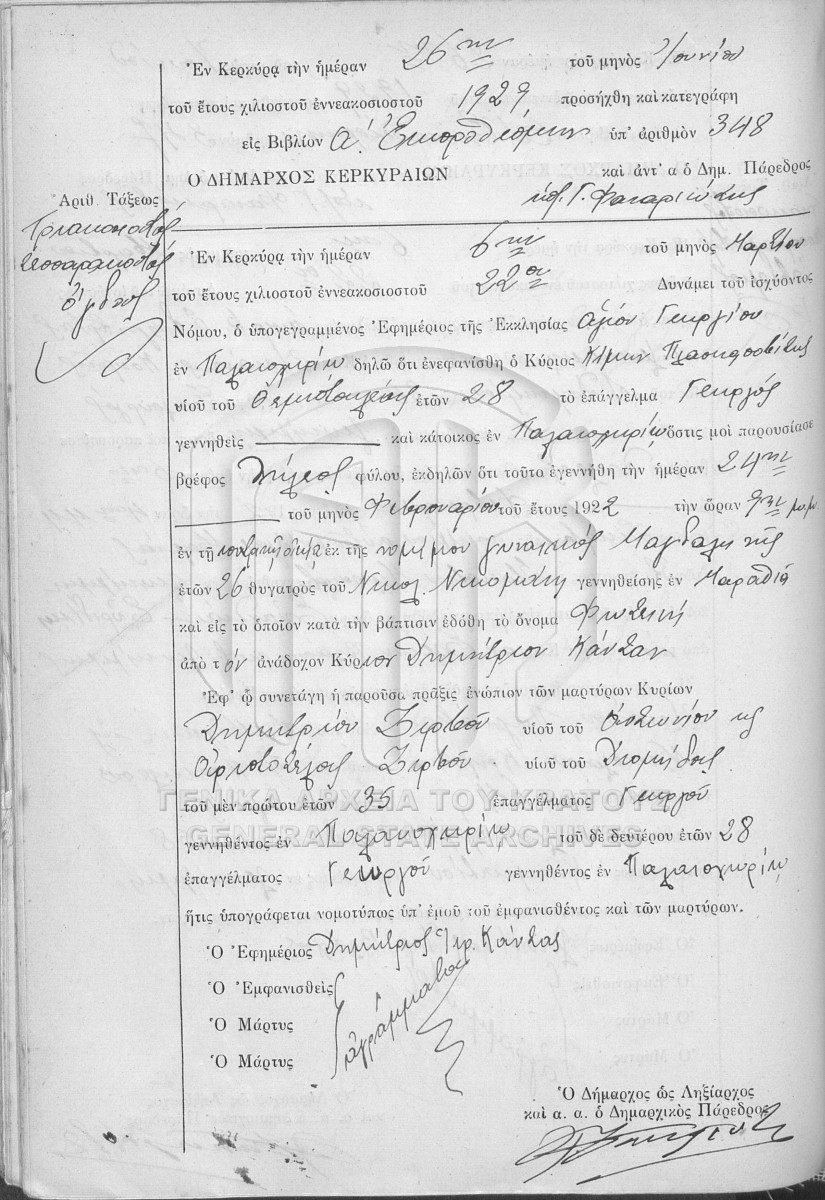 Ἐν Κερκύρᾳ τὴν ἡμέραν 26ην τοῦ μηνὸς Ἰουνίου
τοῦ ἔτους χιλιοστοῦ ἐννεακοσιοστοῦ 1929 προσήχθη καὶ κατεγράφη
εἰς Βιβλίον Α. Ἐκπροθέσμων ὑπ' ἀριθμὸν 348
Ὁ ΔΗΜΑΡΧΟΣ ΚΕΡΚΥΡΑΙΩΝ καὶ ἀντ' α ὁ Δημ. Πάρεδρος
Ἀριθ. Τάξεως
Τριακοσιοστὸς
τεσσαρακοστὸς
ὄγδοος
Ἐν Κερκύρᾳ τὴν ἡμέραν 6ην τοῦ μηνὸς Μαρτίου
τοῦ ἔτους χιλιοστοῦ ἐννεακοσιοστοῦ 22ου Δυνάμει τοῦ ἰσχύοντος
Νόμου, ὁ ὑπογεγραμμένος Ἐφημέριος τῆς Ἐκκλησίας Ἁγίου Γεωργίου
ἐν Παλαιοχωρίῳ δηλῶ ὅτι ἐνεφανίσθη ὁ Κύριος Κίμων
υἱοῦ τοῦ Θεμιστοκλέους ἐτῶν 28 τὸ ἐπάγγελμα Γεωργός
γεννηθεὶς καὶ κάτοικος ἐν Παλαιοχωρίῳ ὅστις μοὶ παρουσίασε
βρέφος θήλεος φύλου, ἐκδηλῶν ὅτι τοῦτο ἐγεννήθη τὴν ἡμέραν 24ην
τοῦ μηνὸς Φεβρουαρίου τοῦ ἔτους 1922 τὴν ὥραν 9ην μ.μ.
ἐν τῇ οἰκίᾳ ἐκ τῆς νομίμου γυναικὸς Μαγδαληνῆς
ἐτῶν 26 θυγατρὸς τοῦ Νικολ. γεννηθείσης ἐν Μαραθιᾷ
καὶ εἰς τὸ ὁποῖον κατὰ τὴν βάπτισιν ἐδόθη τὸ ὄνομα Φωτεινή
ἀπὸ τὸν ἀνάδοχον Κύριον Δημήτριον Κάνταν
Ἐφ' ᾧ συνετάγη ἡ παροῦσα πρᾶξις ἐνώπιον τῶν μαρτύρων Κυρίων
Δημητρίου Ζερβοῦ υἱοῦ τοῦ Ἀντωνίου κ
Ἀριστοτέλους Ζερβοῦ υἱοῦ τοῦ Διομήδους
τοῦ μὲν πρώτου ἐτῶν 35 ἐπαγγέλματος Γεωργοῦ
ΓΕΝΙΚΑ ΑΡΧΕΙΑ ΤΟΥ ΚΡΑΤΟΥΣ
GENERAL STATE ARCHIVES
γεννηθέντος ἐν Παλαιοχωρίῳ τοῦ δὲ δευτέρου ἐτῶν 28
ἐπαγγέλματος Γεωργοῦ γεννηθέντος ἐν Παλαιοχωρίῳ
ἥτις ὑπογράφεται νομοτύπως ὑπ' ἐμοῦ τοῦ ἐμφανισθέντος καὶ τῶν μαρτύρων.
Ὁ Ἐφημέριος Δημήτριος Ἱερ. Κάντας
Ὁ Ἐμφανισθεὶς
Ὁ Μάρτυς
Ὁ Μάρτυς
ἀγράμματοι
Ὁ Δήμαρχος ὡς Ληξίαρχος
καὶ α. α. ὁ Δημαρχικὸς Πάρεδρος